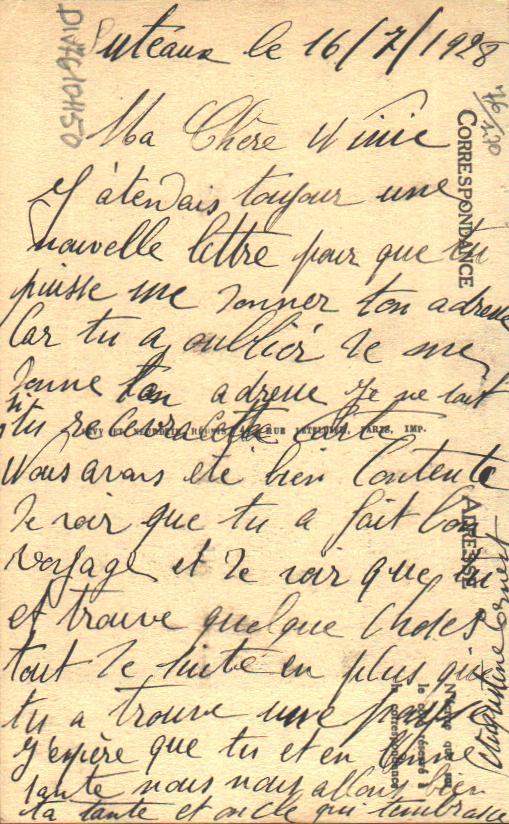 Puteaux le 16/7/1928
Ma Chère Winie
J'atendais toujour une
nouvelle lettre pour que tu
puisse me donner ton adresse
Car tu a oublier de me
donne ton adresse Je ne sait
si tu recevra cette carte
Nous avons eté bien Contente
de voir que tu a fait bon
voyage et de voir que tu
et trouve quelque choses
tout de suite en plus que
tu a trouve une
J'espère que tu et en bonne
sante nous nous allons bien
ta tante et oncle qui t'embrasse
Augustine Ernest
CORRESPONDANCE
ADRESSE
RUE LETELLIER, PARIS, IMP.
DIV7G10H50